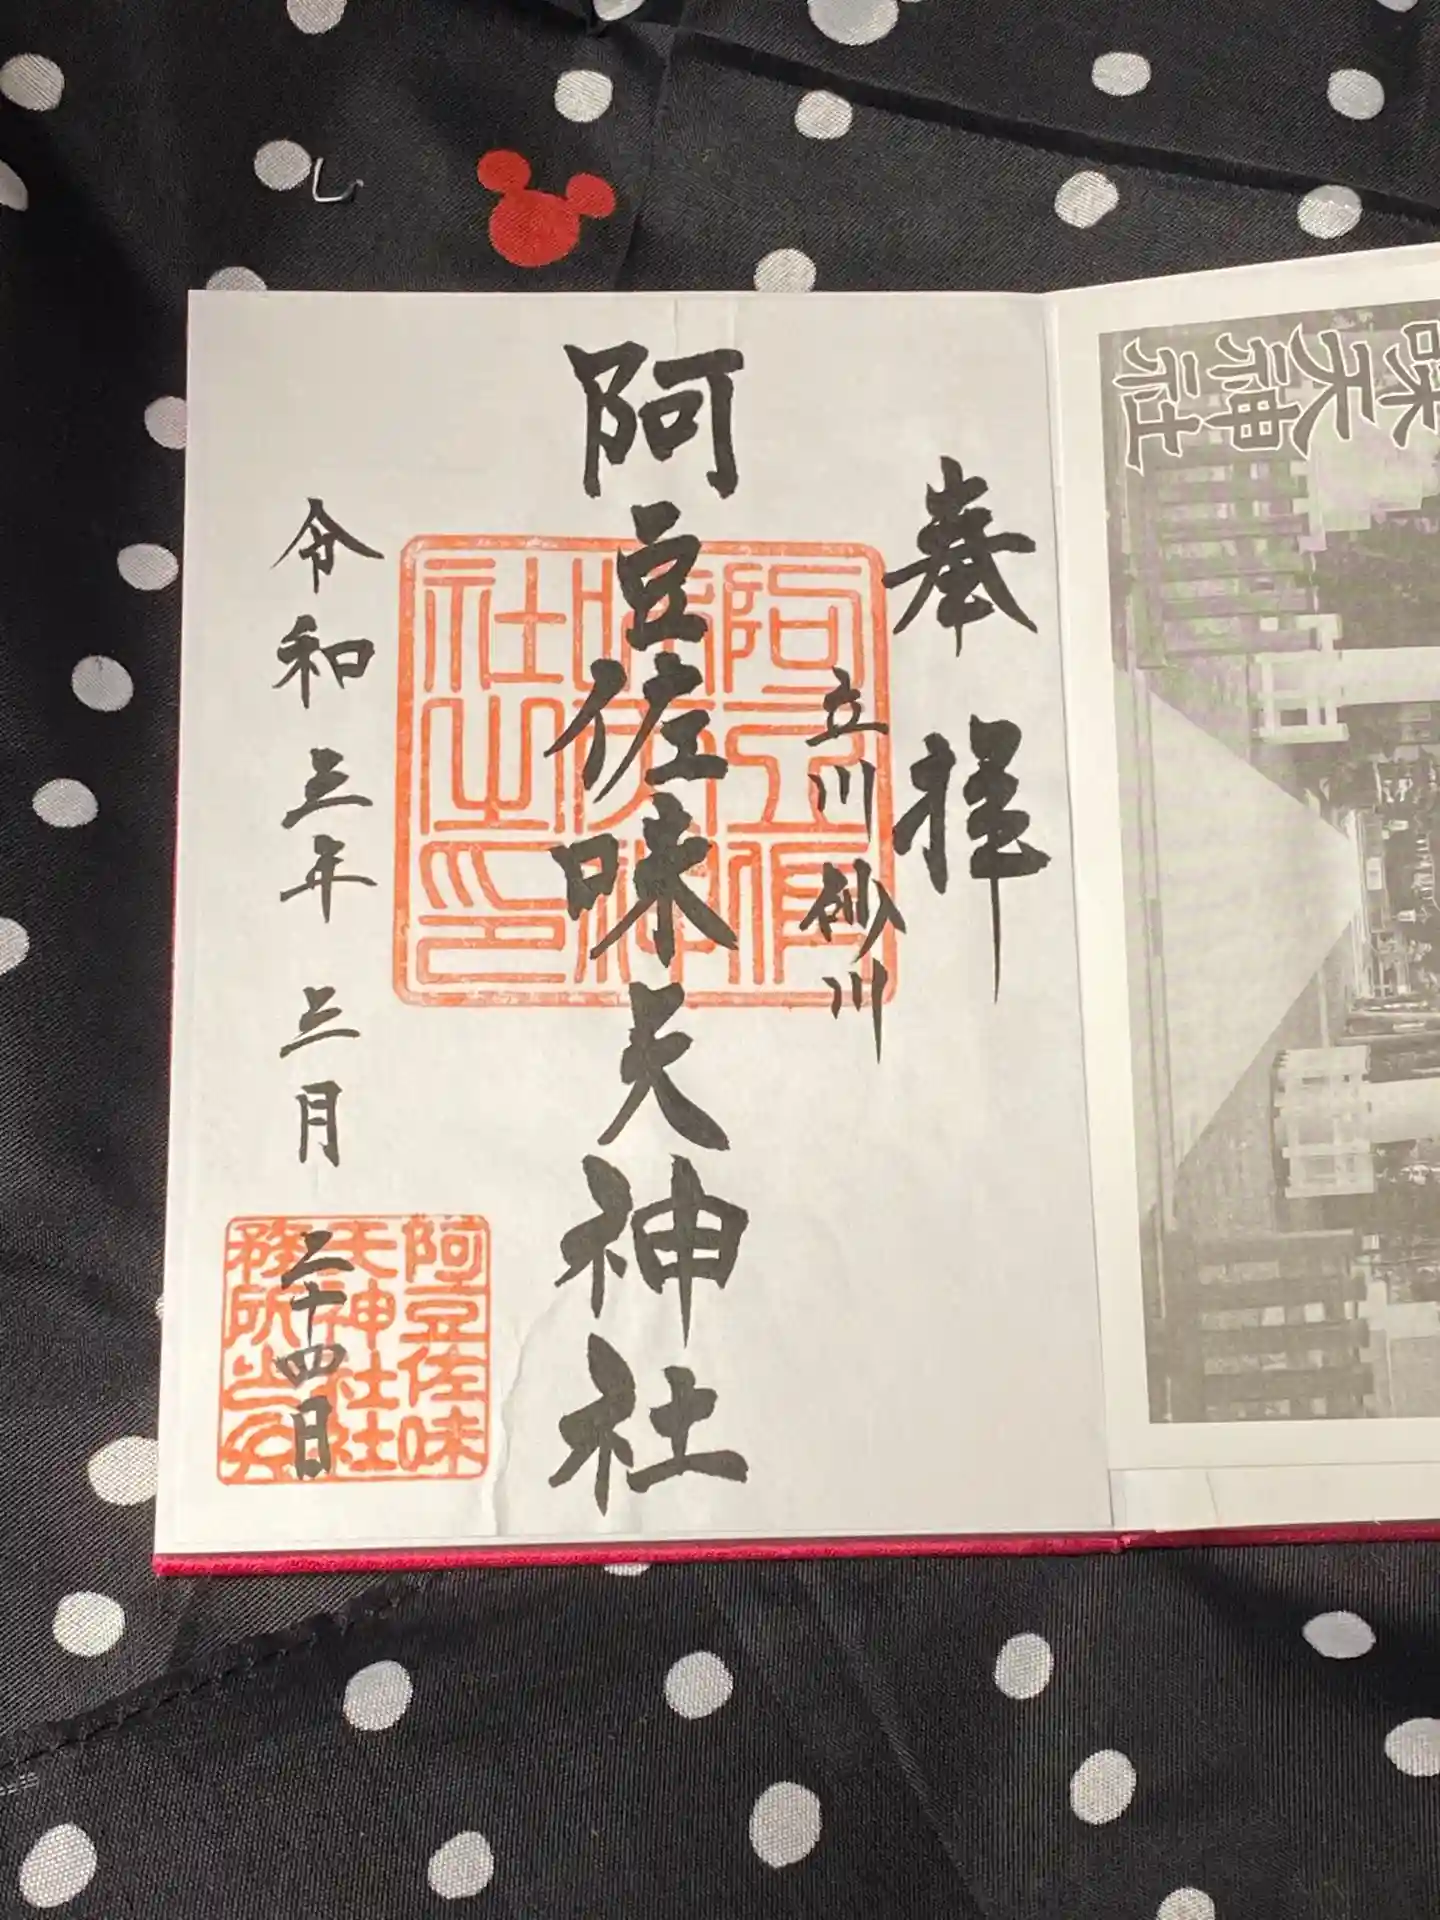 味天神社
奉拝
立川砂川
阿豆佐味天神社
令和三年三月二十四日
阿豆佐
味天神
社之印
阿豆佐味
天神社社
務所之印